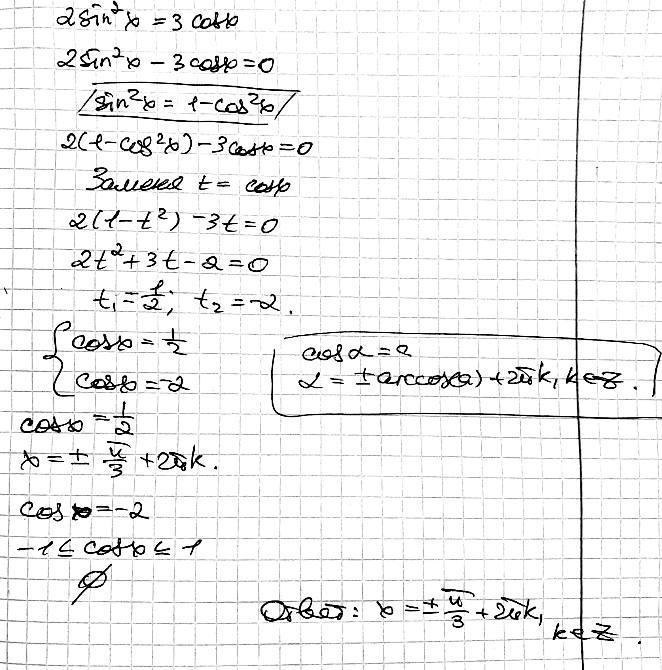 2sin²x = 3cosx
2sin²x - 3cosx = 0
/sin²x = 1-cos²x/
2(1-cos²x) - 3cosx = 0
Замена t = cosx
2(1-t²) - 3t = 0
2t² + 3t - 2 = 0
t₁ = 1/2; t₂ = -2.
{ cosx = 1/2
cosx = -2
cosα = a
α = ± arccos(a) + 2πk, k∈Z.
cosx = 1/2
x = ± π/3 + 2πk.
cosx = -2
-1 ≤ cosx ≤ 1
∅
Ответ: x = ± π/3 + 2πk, k∈Z.